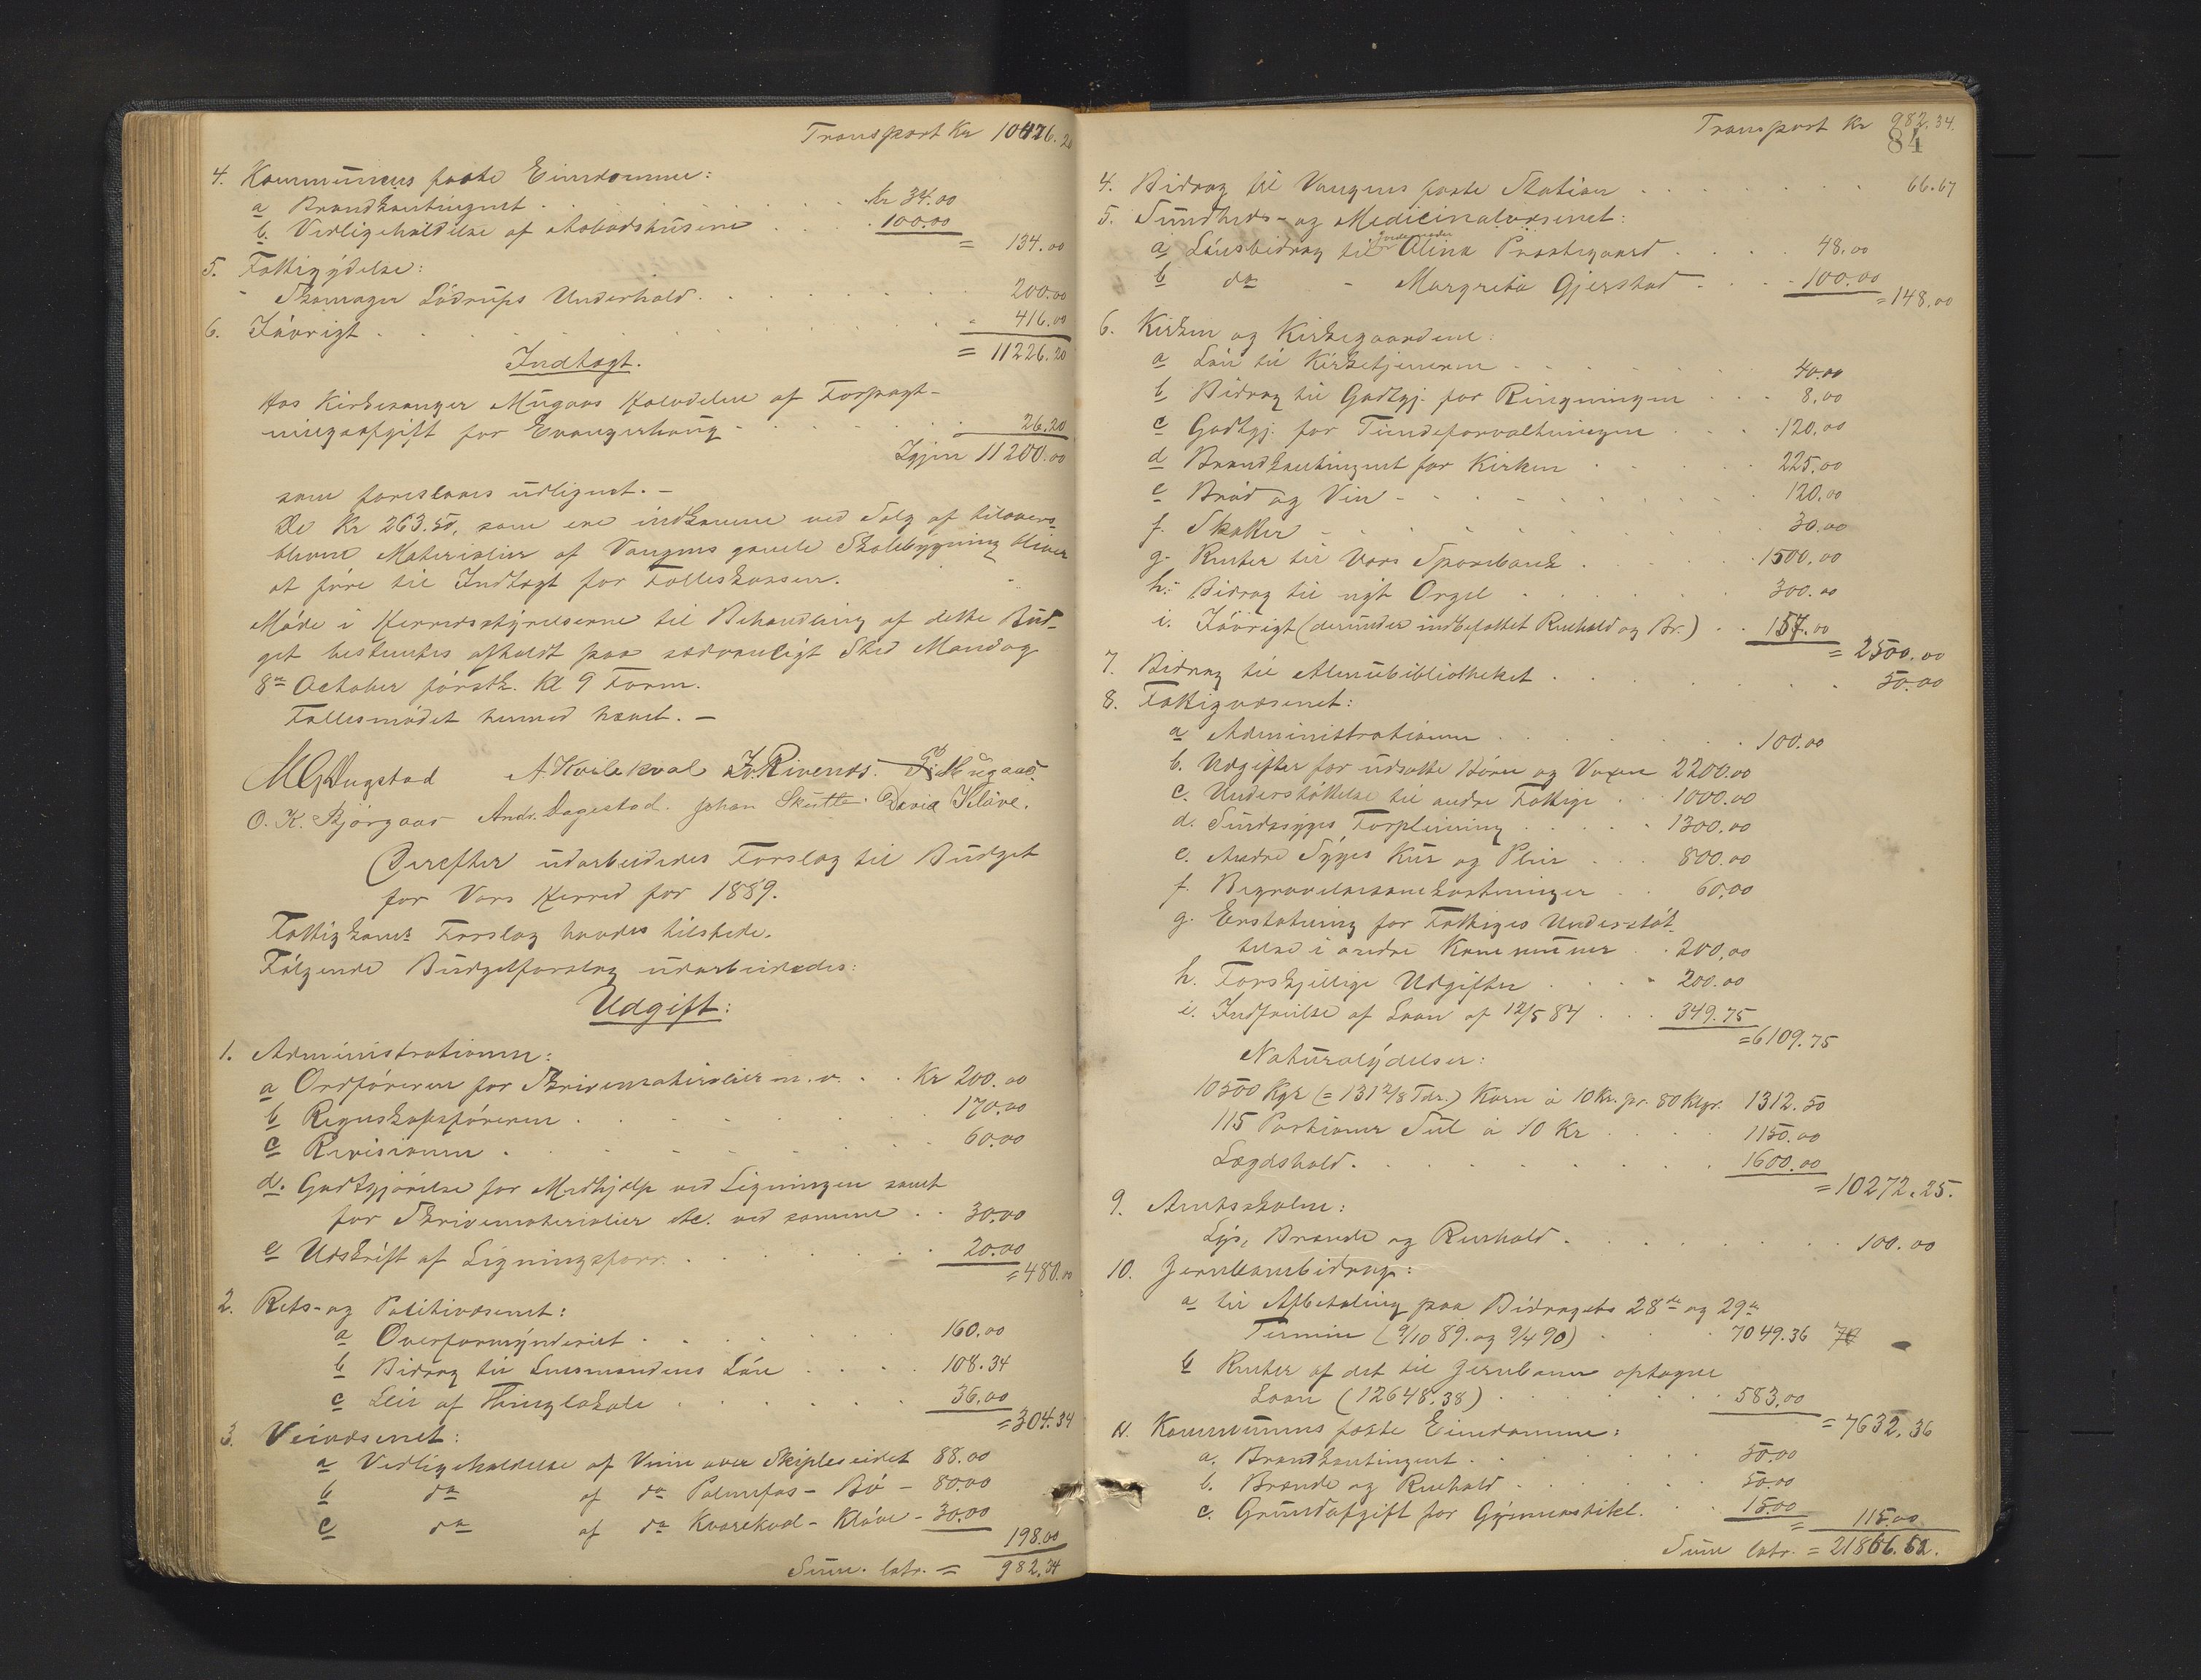 Transport Kr 10476.20
4. Kommunens faste Eiendomme:
a Brandkontingent . . . kr 34.00
b. Vedligeholdelse af Arbeidshusene . . . 100.00
= 134.00
5. Fattigydelse:
- Skomager Lödrups Underhold . . . 200.00
6. Iövrigt . . . 416.00
= 11226.20
Indtægt.
Hos Kirkesanger Mugaas Halvdelen af Forpagt-
ningsafgift for Evangerhaug . . . 26.20
Igjen 11200.00
som foreslaaes udlignet. -
De Kr 263.50, som ere indkomne ved Salg af tilovers-
blevne Materialier af Vangens gamle Skolebygning bliver
at före til Indtægt for Fælleskassen.
Möde i Herredsstyrelserne til Behandling af dette Bud-
get bestemtes afholdt paa sædvanligt Sted Mandag
8de October förstk. Kl 9 Form.
Fællesmödet hermed hævet. -
MGDugstad A. Kvilekval IvRivends. Mugaas.
O. K. Björgaas Andr. Dagestad. Johan Skutle. David Klöve.
Derefter udarbeidedes Forslag til Budget
for Vors Herred for 1889.
Fattigkoms. Forslag havdes tilstede.
Fölgende Budgetforslag udarbeidedes:
Udgift:
1. Administrationen:
a Ordföreren for Skrivematerialier m. v. . . Kr 200.00
b Regnskapsföreren . . . 170.00
c Revisionen . . . 60.00
d. Godtgjörelse for Medhjelp ved Ligningen samt
for Skrivematerialier etc. ved samme . . 30.00
e Udskrift af Ligningsforr. . . . 20.00
= 480.00
2. Rets- og Politivæsenet:
a Overformynderiet . . . 160.00
b Bidrag til Lensmandens Lön . . . 108.34
c Leie af Thinglokale . . . 36.00
= 304.34
3. Veivæsenet:
a Vedligeholdelse af Veien over Skipleseidet 88.00
b do af do Palmefos - Bö - 80.00
c do af do Kvarekval - Klöve - 30.00
198.00
Sum. latr. = 982.34
Transport Kr 982.34.
84
4. Bidrag til Vangens faste Station . . . 66.67
5. Sundheds- og Medicinalvæsenet:
a Lönsbidrag til Jordemoder Olina Præstegaard . . . 48.00
b do - Margreta Gjerstad . . . 100.00
= 148.00
6. Kirken og Kirkegaardene:
a Lön til Kirketjeneren . . . 40.00
b Bidrag til Godtgj. for Ringningen . . . 8.00
c Godtgj. for Tiendeforvaltningen . . . 120.00
d Brandkontingent for Kirken . . . 225.00
e Bröd og Vin . . . 120.00
f. Skatter . . . 30.00
g. Renter til Vors Sparebank . . . 1500.00
h. Bidrag til nyt Orgel . . . 300.00
i. Iövrigt (derunder indbefattet Renhold og Br.) . . 157.00
= 2500.00
7. Bidrag til Almuebibliotheket . . . 50.00
8. Fattigvæsenet:
a Administrationen . . . 100.00
b. Udgifter for udsatte Börn og Voxne 2200.00
c. Understöttelse til andre Fattige . . 1000.00
d. Sindssyges Forpleining . . . 1300.00
e. Andre Syges Kur og Pleie . . . 800.00
f. Begravelsesomkostninger . . 60.00
g. Erstatning for Fattiges Understöt-
telse i andre Kommuner . . 200.00
h. Forskjellige Udgifter . . . 200.00
i. Indfrielse af Laan af 12/5 84 . . . 349.75
= 6109.75
Naturalydelser:
10500 Kgr (= 131 2/8 Tdr.) Korn à 10 Kr. pr. 80 Klgr. 1312.50
115 Portioner Sul à 10 Kr . . . 1150.00
Lægdshold . . . 1600.00
= 10272.25.
9. Amtsskolen:
Lys, Brænde og Renhold . . . 100.00
10. Jernbanebidrag:
a til Afbetaling paa Bidragets 28de og 29de
Termin (9/10 89. og 9/4 90) . . . 7049.36
b Renter af det til Jernbanen optagne
Laan (12648.38) . . . 583.00
= 7632.36
11. Kommunens faste Eiendomme:
a. Brandkontingent . . . 50.00
b. Brænde og Renhold . . . 50.00
c. Grundafgift for Gymnastikl. . . 15.00
= 115.00
Sum latr. = 21866.62.